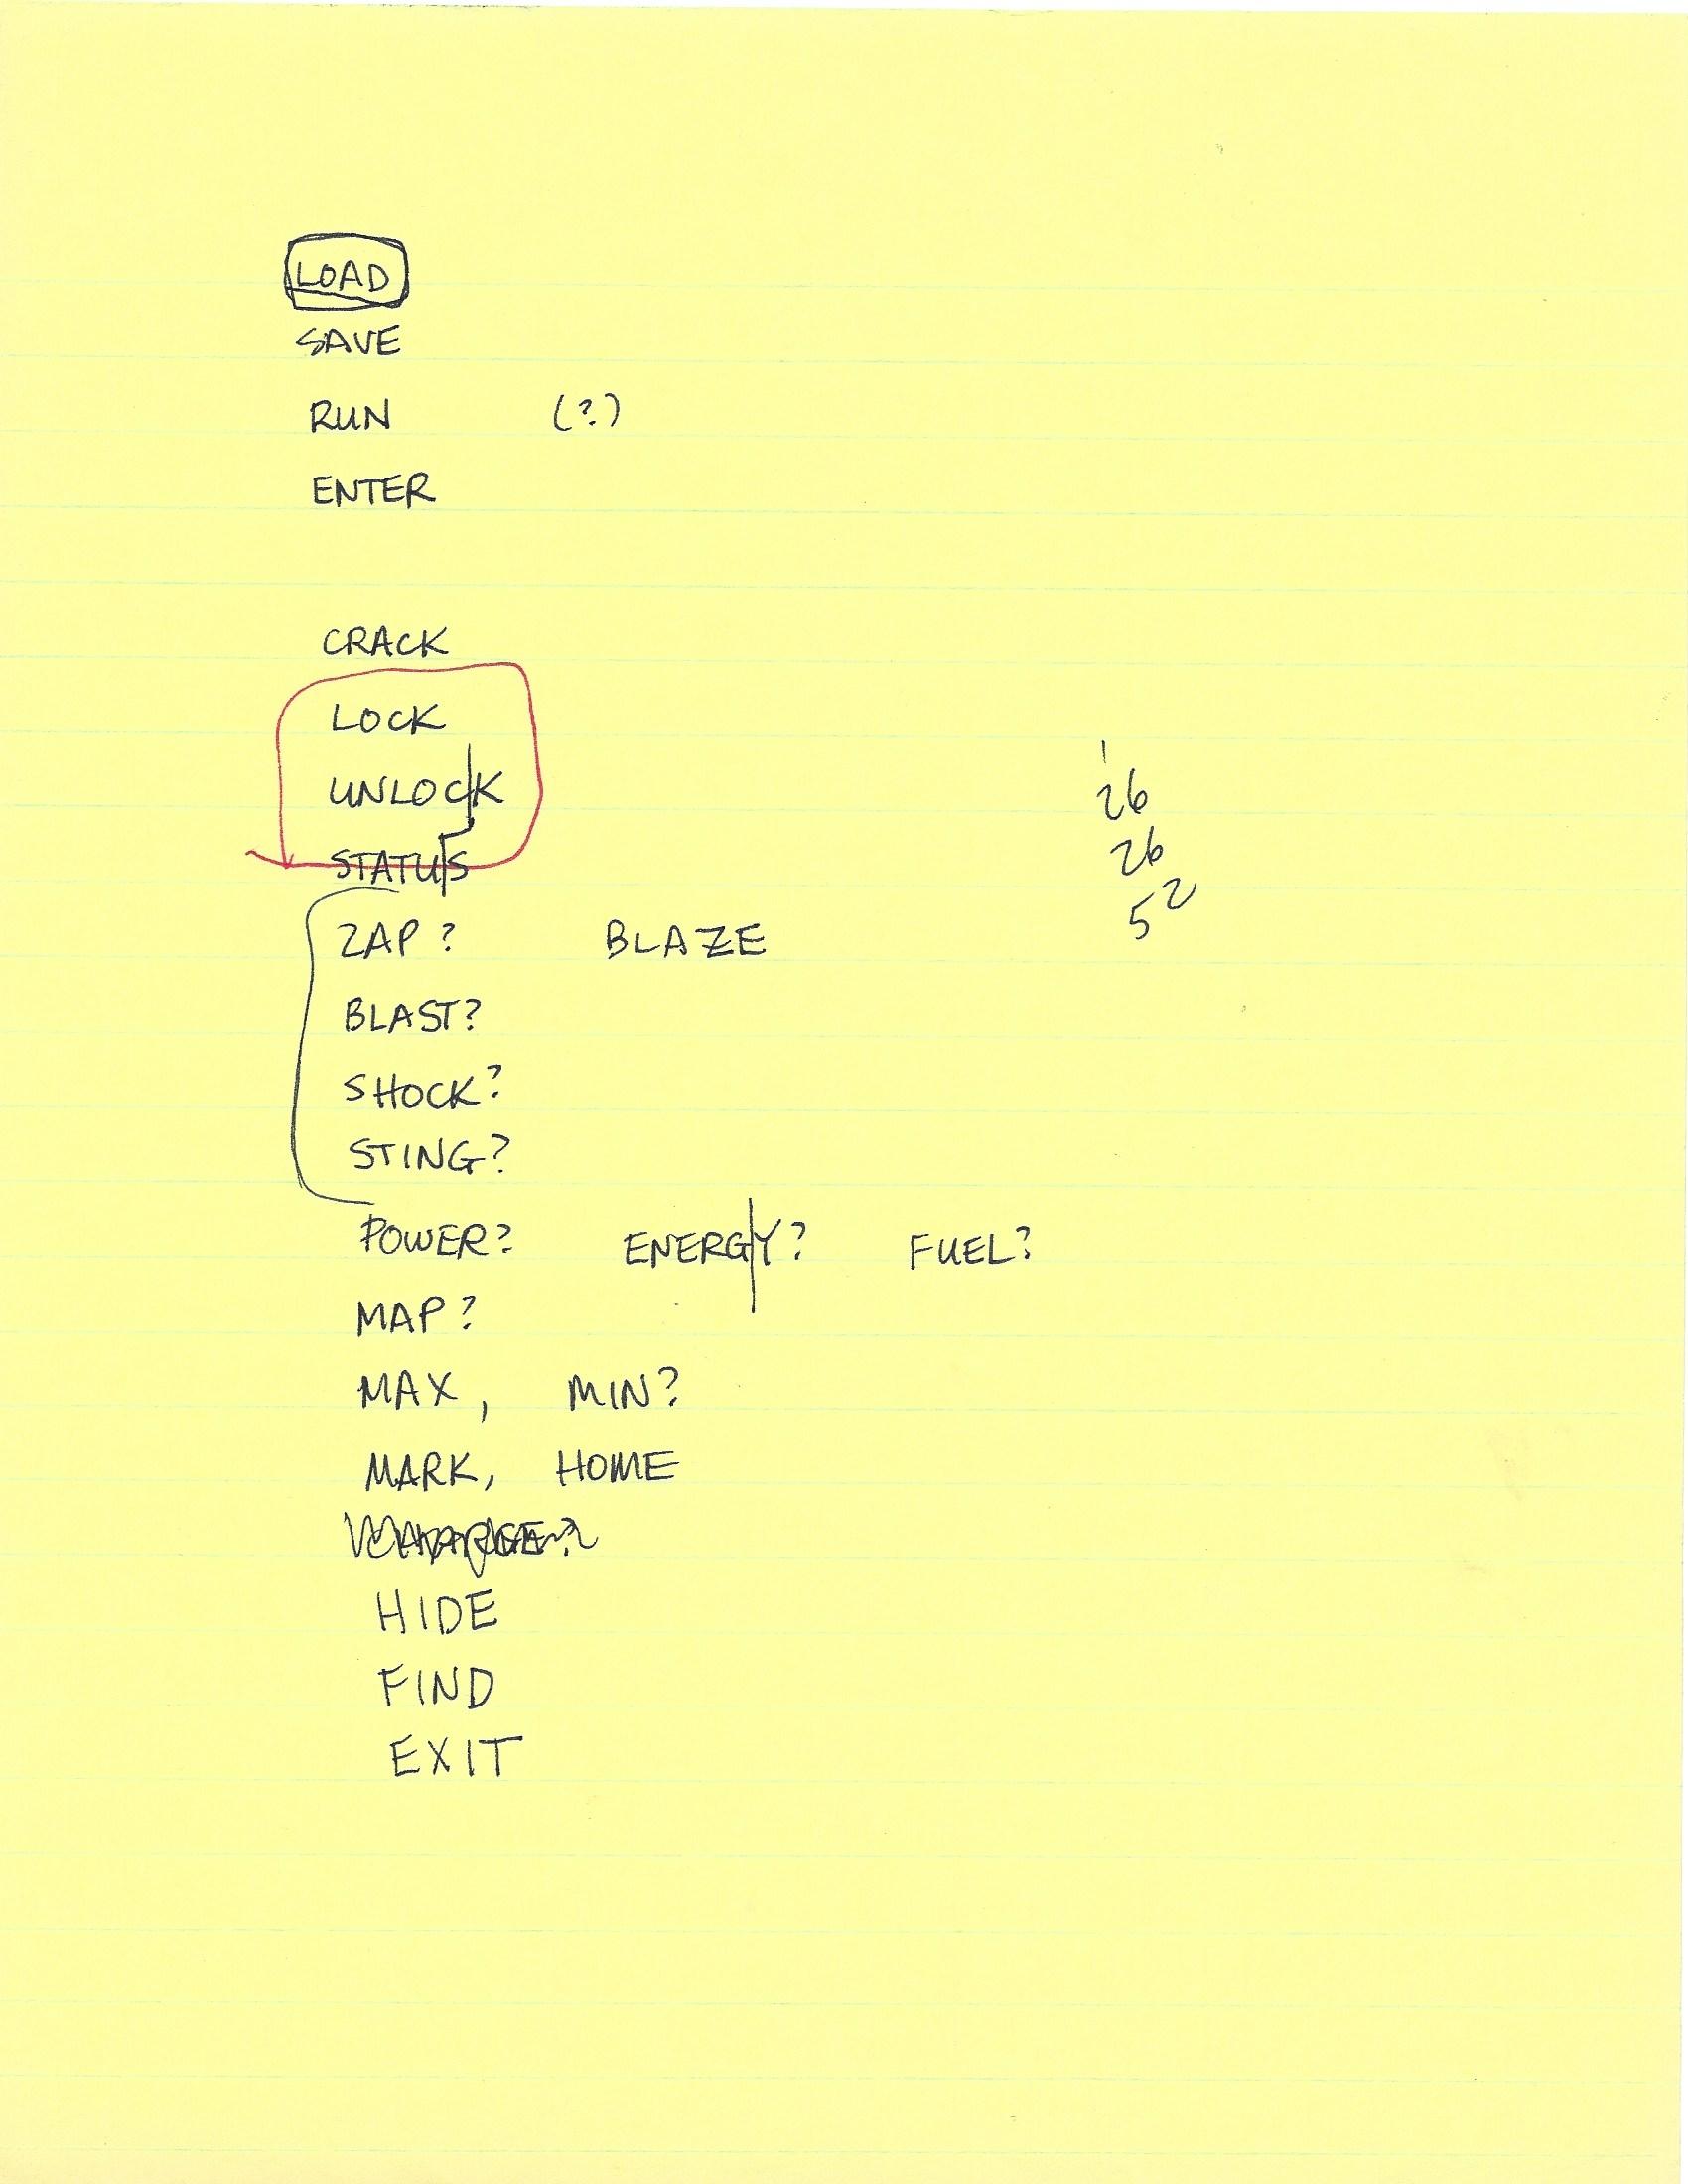 LOAD
SAVE
RUN (?)
ENTER
CRACK
LOCK
UNLOCK
STATUS
1
26
26
52
ZAP? BLAZE
BLAST?
SHOCK?
STING?
POWER? ENERGY? FUEL?
MAP?
MAX, MIN?
MARK, HOME
HIDE
FIND
EXIT